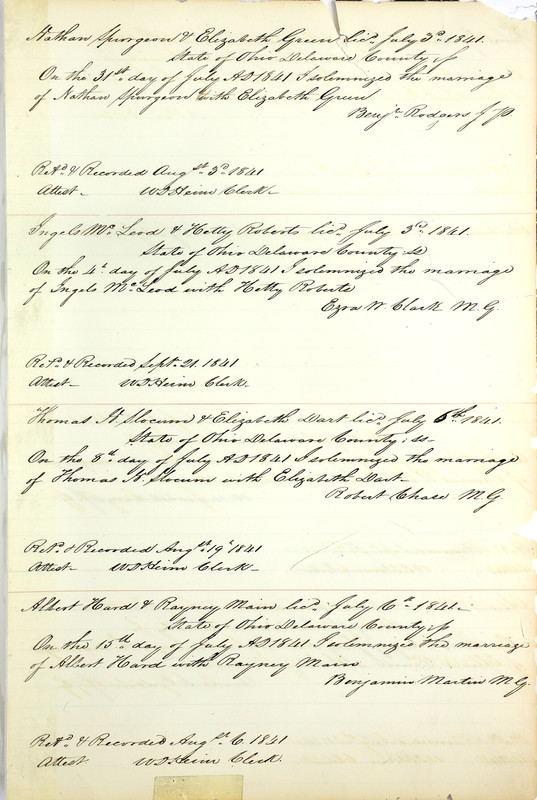 Nathan Spurgeon & Elizabeth Green lic. July 3d. 1841.
State of Ohio Delaware County ss
On the 31st day of July AD 1841 I solemnized the marriage
of Nathan Spurgeon with Elizabeth Green
Benjn. Rodgers J P
Retd. & Recorded Augst. 3d. 1841
Attest - W D Heim Clerk -
Ingels Mc Leod & Hetty Roberts lic. July 3d. 1841.
State of Ohio Delaware County ss
On the 4th day of July AD 1841 I solemnized the marriage
of Ingels Mc Leod with Hetty Roberts
Ezra W. Clark M. G.
Retd. & Recorded Sept. 21. 1841
Attest - W D Heim Clerk.
Thomas H. Slocum & Elizabeth Dart lic. July 6th. 1841.
State of Ohio Delaware County: ss -
On the 8th day of July AD 1841 I solemnized the marriage
of Thomas H. Slocum with Elizabeth Dart -
Robert Chase M. G
Retd. & Recorded Augst. 19th 1841
Attest - W D Heim Clerk -
Albert Hard & Rayney Main lic. July 6th. 1841 -
State of Ohio Delaware County ss
On the 15th day of July AD 1841 I solemnized the marriage
of Albert Hard with Rayney Main
Benjamin Martin M. G.
Retd. & Recorded Augst. 6. 1841
Attest W D Heim Clerk.